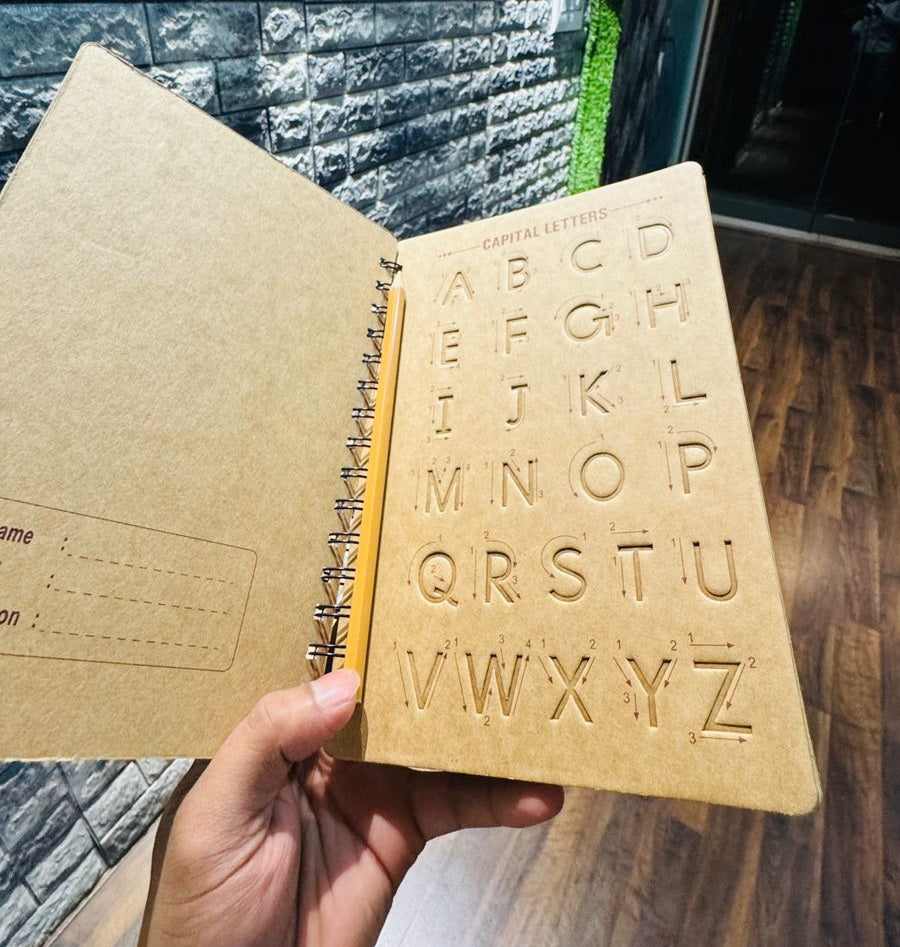 CAPITAL LETTERS
A B C D
E F G H
I J K L
M N O P
Q R S T U
V W X Y Z
ame
on :